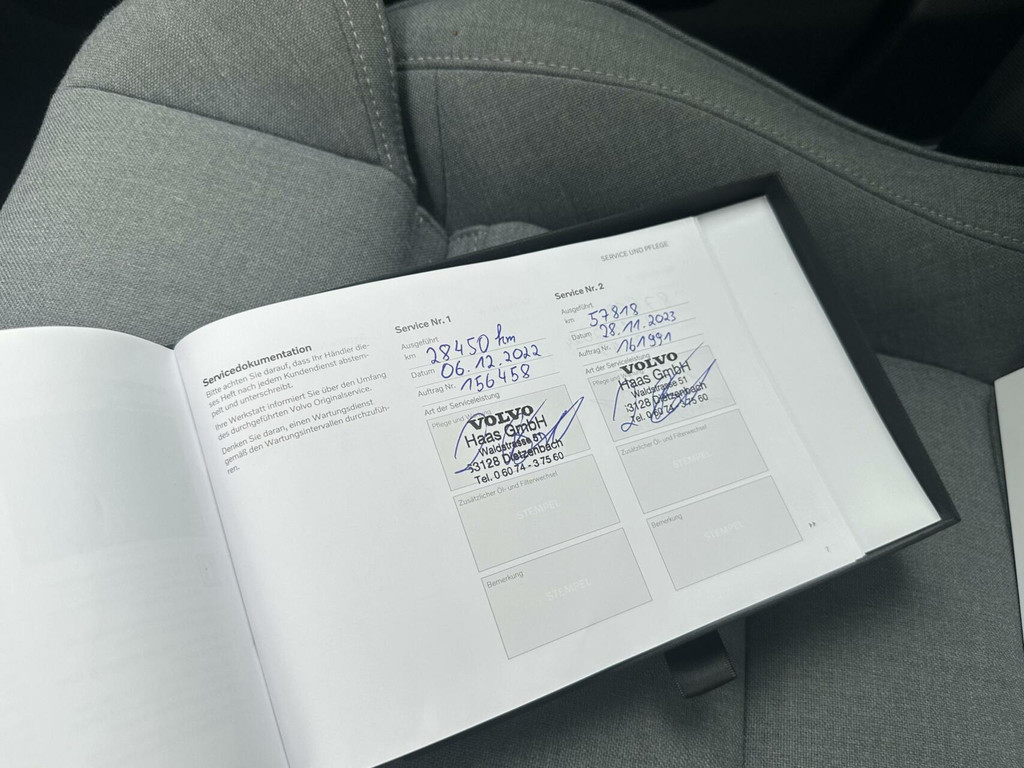 SERVICE UND PFLEGE
Servicedokumentation
Bitte achten Sie darauf, dass Ihr Händler die-
ses Heft nach jedem Kundendienst abstem-
pelt und unterschreibt.
Ihre Werkstatt informiert Sie über den Umfang
des durchgeführten Volvo Originalservice.
Denken Sie daran, einen Wartungsdienst
gemäß den Wartungsintervallen durchzufüh-
ren.
Service Nr. 1
Ausgeführt
km 28450 km
Datum 06.12.2022
Auftrag Nr. 156458
Art der Serviceleistung
Pflege und
VOLVO
Haas GmbH
Waldstrasse 51
63128 Dietzenbach
Tel. 0 60 74 - 3 75 60
Zusätzlicher Öl- und Filterwechsel
STEMPEL
Bemerkung
STEMPEL
Service Nr. 2
Ausgeführt
km 57818
Datum 28.11.2023
Auftrag Nr. 161991
Art der Serviceleistung
Pflege
VOLVO
Haas GmbH
Waldstrasse 51
63128 Dietzenbach
Tel. 0 60 74 - 3 75 60
Zusätzlicher Öl- und Filterwechsel
STEMPEL
Bemerkung
STEMPEL
7